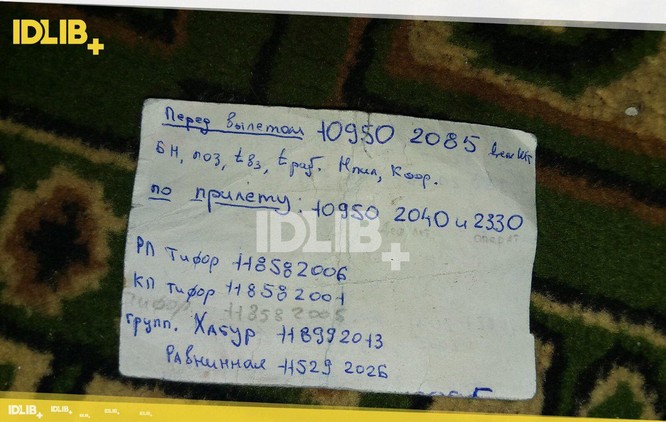 IDLIB+
Перед вылетом 10950 2085
БН, поз, tвз, tраб. Нпол, Коор.
по прилёту: 10950 2040 и 2330
IDLIB+
РП Тифор 118582006
КП Тифор 118582001
Тифор. 118582005
групп. Хатур 118992013
Равнинная 11529 2026
IDLIB+ IDLIB+ IDLIB+ IDLIB+ IDLIB+